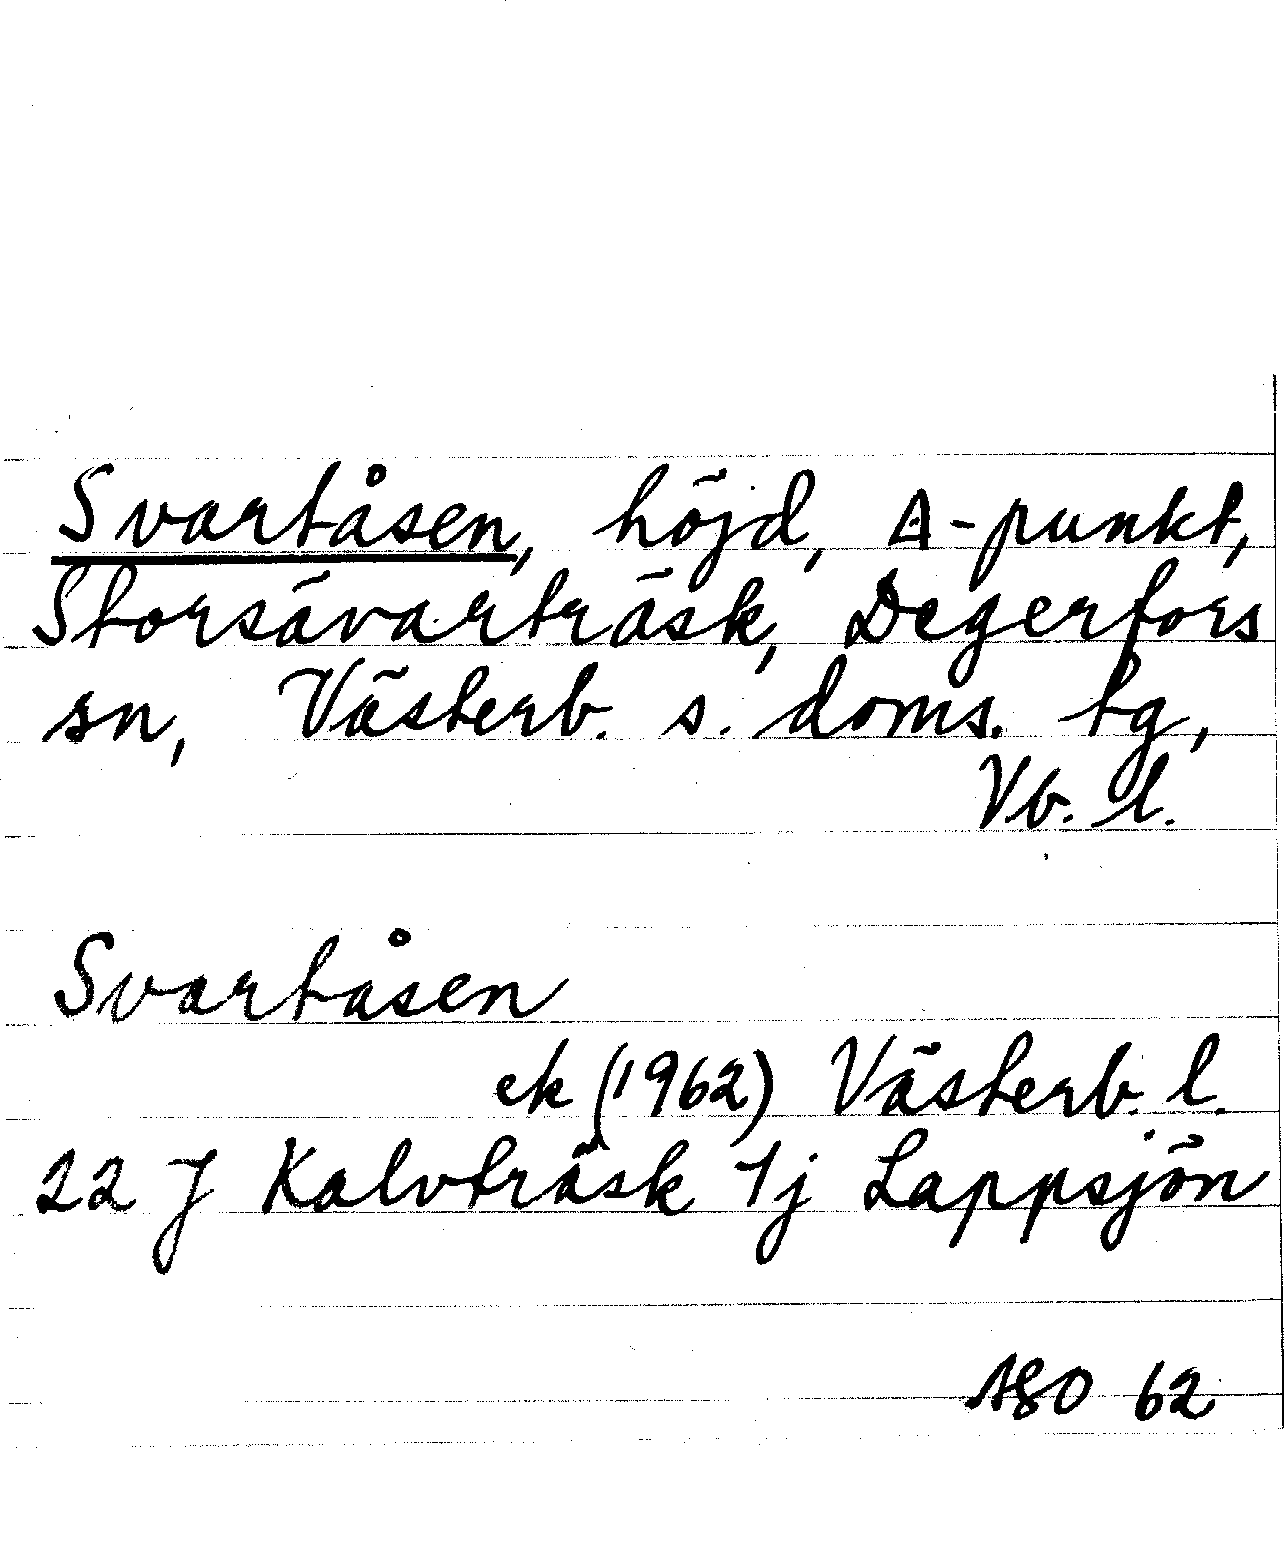 Svartåsen, höjd, Δ-punkt,
Storsävarträsk, Degerfors
sn, Västerb. s. doms. tg,
Vb. l.
Svartåsen
ek (1962) Västerb. l.
22 J Kalvträsk 1j Lappsjön
62